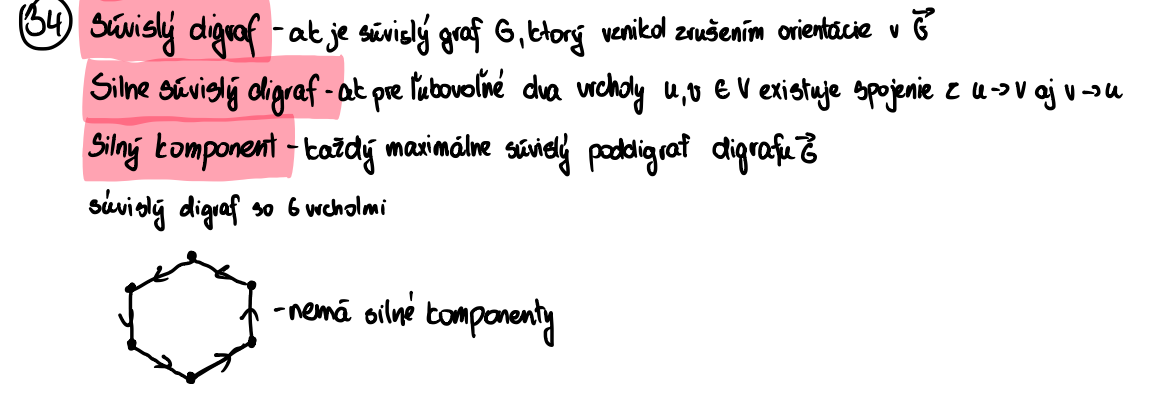 34 Súvislý digraf - ak je súvislý graf G, ktorý vznikol zrušením orientácie v G⃗
Silne súvislý digraf - ak pre ľubovoľné dva vrcholy u, v ∈ V existuje spojenie z u → v aj v → u
Silný komponent - každý maximálne súvislý poddigraf digrafu G⃗
súvislý digraf so 6 vrcholmi
- nemá silné komponenty